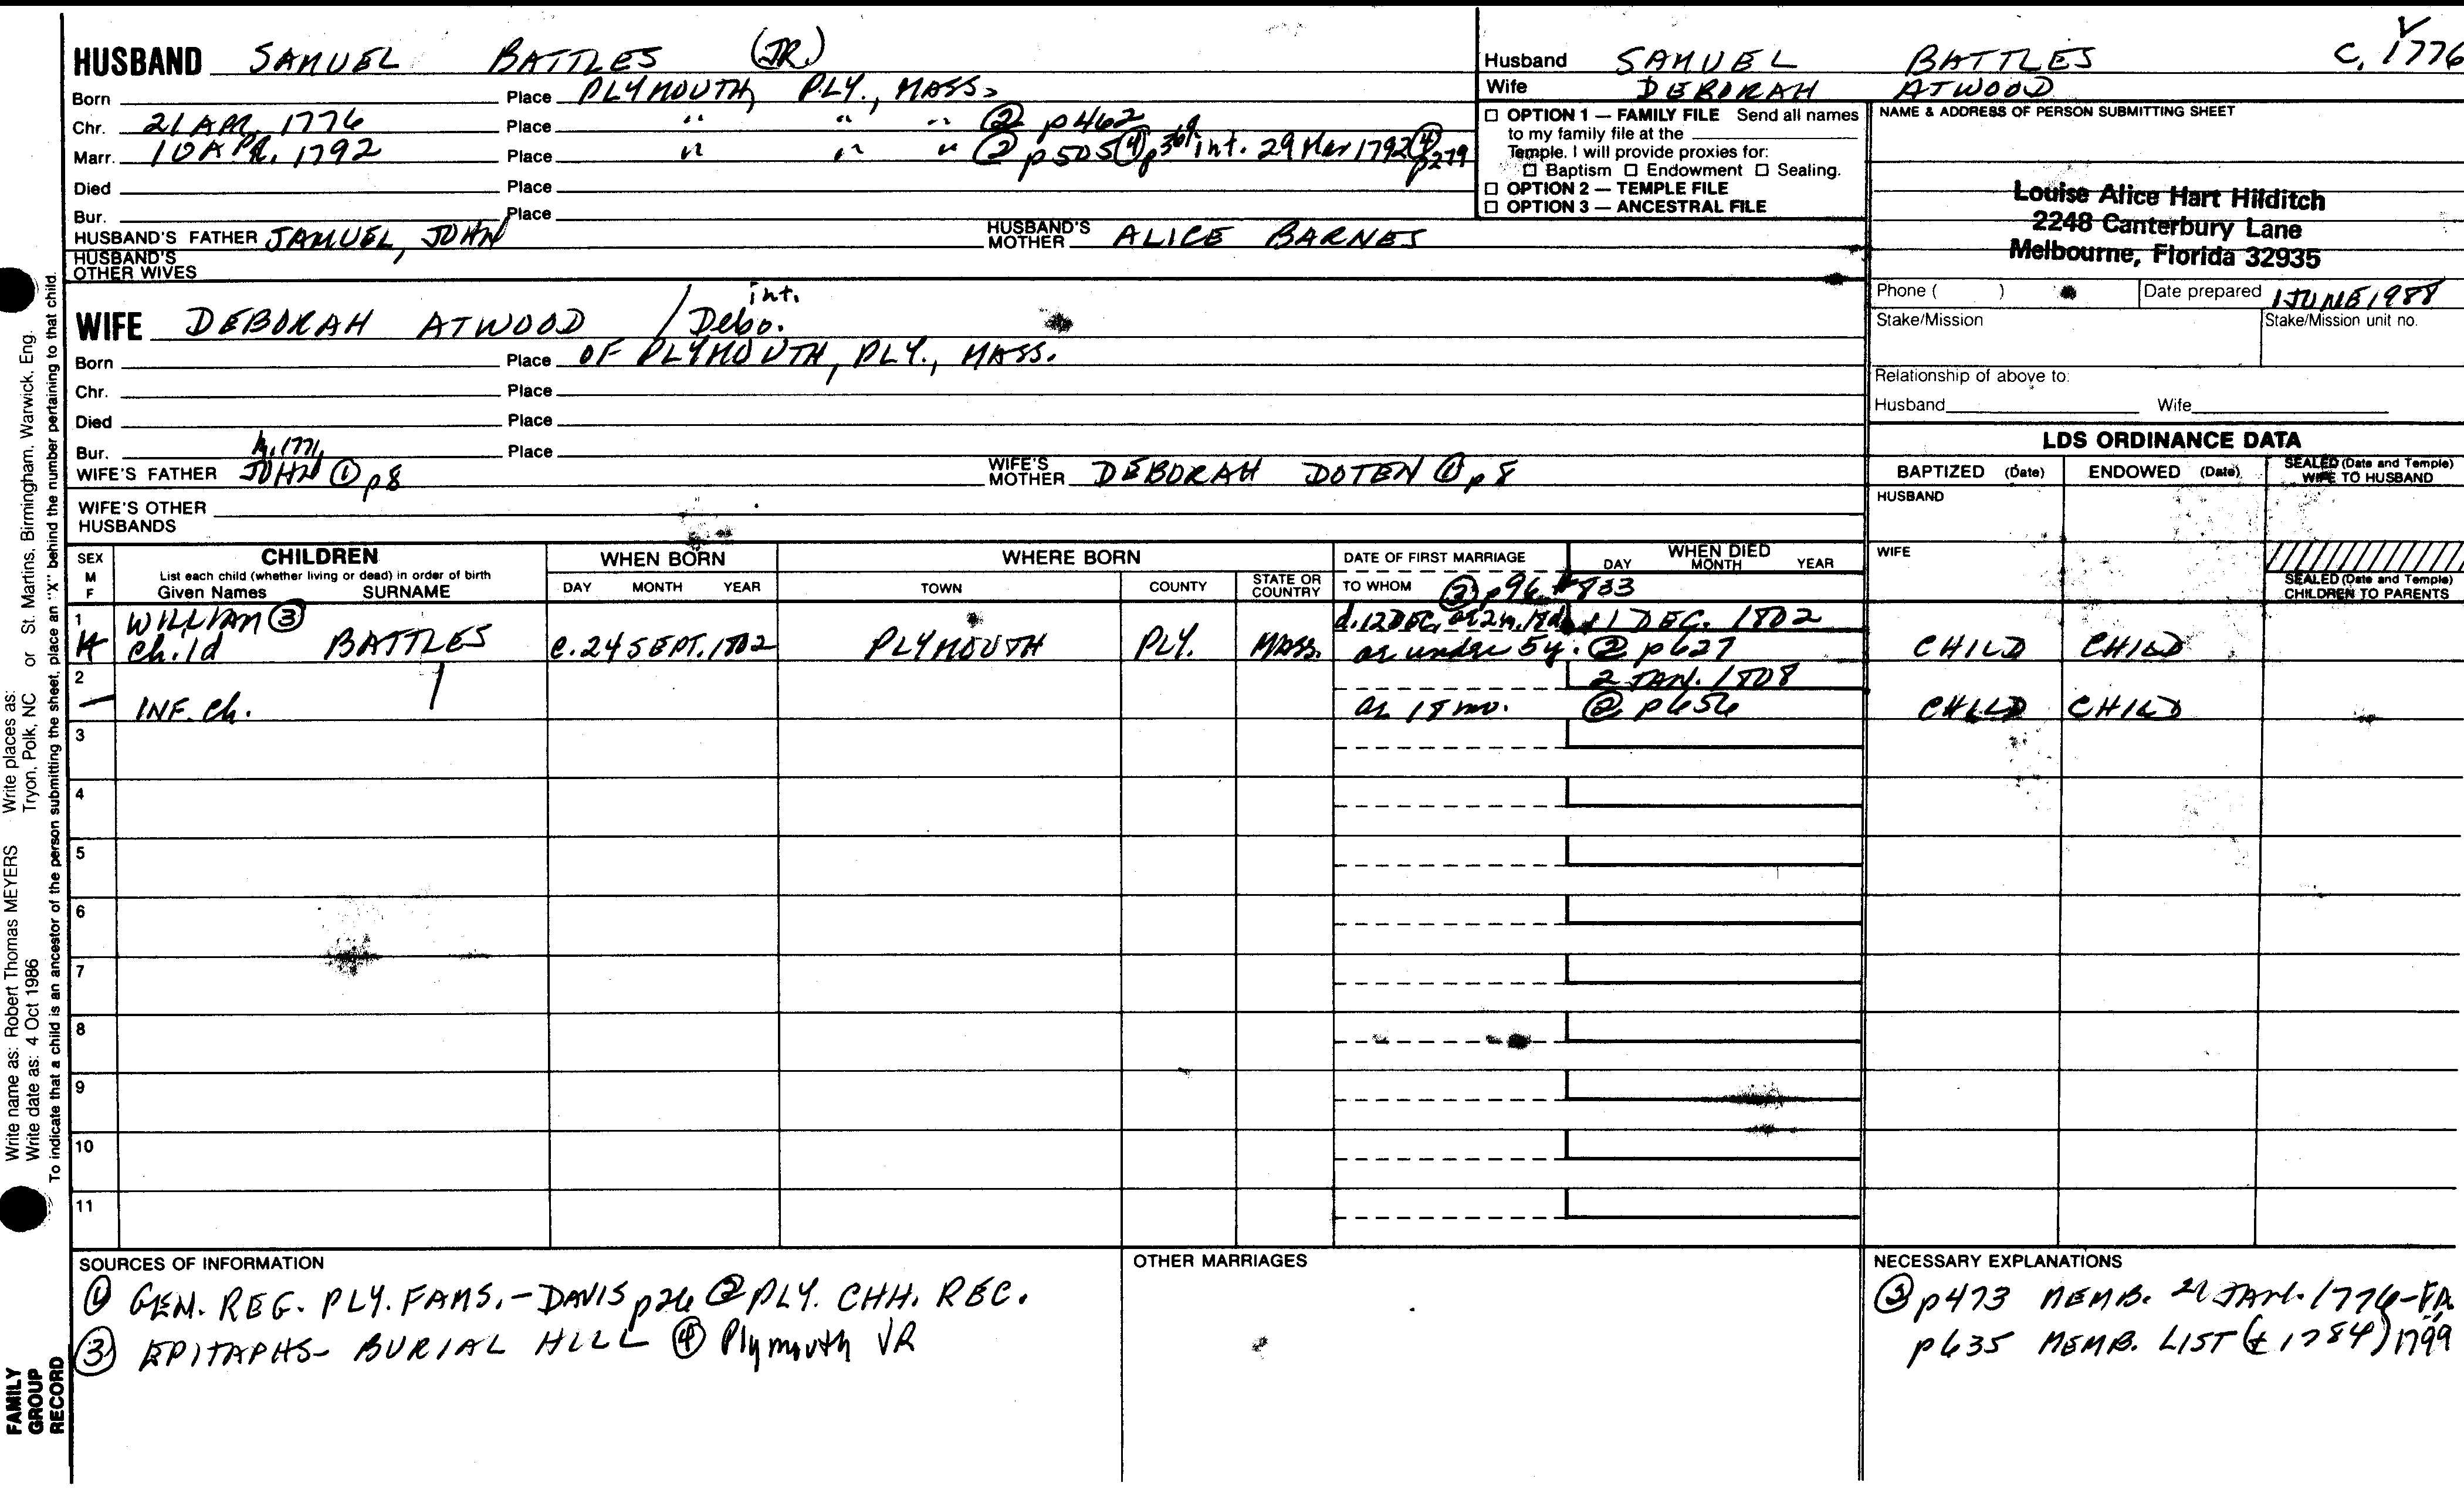 HUSBAND SAMUEL BATTLES (JR.)
Born Place PLYMOUTH, PLY., MASS.
Chr. 21 APR. 1776 Place " " " ② p462
Marr. 10 APR. 1792 Place " " " ② p505 ④ p369 int. 29 Mar 1792 ④ p279
Died Place
Bur. Place
HUSBAND'S FATHER SAMUEL, JOHN HUSBAND'S MOTHER ALICE BARNES
HUSBAND'S OTHER WIVES
Husband SAMUEL BATTLES C. 1776
Wife DEBORAH ATWOOD
☐ OPTION 1 — FAMILY FILE Send all names
to my family file at the
Temple. I will provide proxies for:
☐ Baptism ☐ Endowment ☐ Sealing.
☐ OPTION 2 — TEMPLE FILE
☐ OPTION 3 — ANCESTRAL FILE
NAME & ADDRESS OF PERSON SUBMITTING SHEET
Louise Alice Hart Hilditch
2248 Canterbury Lane
Melbourne, Florida 32935
Phone ( ) Date prepared 1 JUNE 1988
Stake/Mission Stake/Mission unit no.
Relationship of above to:
Husband Wife
int.
WIFE DEBORAH ATWOOD / Debo.
Born Place OF PLYMOUTH, PLY., MASS.
Chr. Place
Died Place
Bur. Place
1771
WIFE'S FATHER JOHN ① p8 WIFE'S MOTHER DEBORAH DOTEN ① p8
WIFE'S OTHER HUSBANDS
LDS ORDINANCE DATA
BAPTIZED (Date) ENDOWED (Date) SEALED (Date and Temple) WIFE TO HUSBAND
HUSBAND
WIFE
SEALED (Date and Temple) CHILDREN TO PARENTS
SEX M F
CHILDREN
List each child (whether living or dead) in order of birth
Given Names SURNAME
WHEN BORN
DAY MONTH YEAR
WHERE BORN
TOWN COUNTY STATE OR COUNTRY
DATE OF FIRST MARRIAGE
TO WHOM
WHEN DIED
DAY MONTH YEAR
③ p96 #833
1 WILLIAM ③ d. 12 DEC. 11 DEC. 1802
Child BATTLES C. 24 SEPT. 1802 PLYMOUTH PLY. MASS. as under 5y. ② p627 CHILD CHILD
2 2 JAN. 1808
INF. Ch. 18 mo. ② p656 CHILD CHILD
3
4
5
6
7
8
9
10
11
SOURCES OF INFORMATION
① GEN. REG. PLY. FAMS. - DAVIS p26 ② PLY. CHH. REC.
③ EPITAPHS - BURIAL HILL ④ Plymouth VR
OTHER MARRIAGES
NECESSARY EXPLANATIONS
② p473 MEMB. 21 JAN. 1776 - FA.
p635 MEMB. LIST (± 1784) 1799
Write name as: Robert Thomas MEYERS Write places as:
Write date as: 4 Oct 1986 Tryon, Polk, NC or St. Martins, Birmingham, Warwick, Eng.
To indicate that a child is an ancestor of the person submitting the sheet, place an "X" behind the number pertaining to that child.
FAMILY
GROUP
RECORD